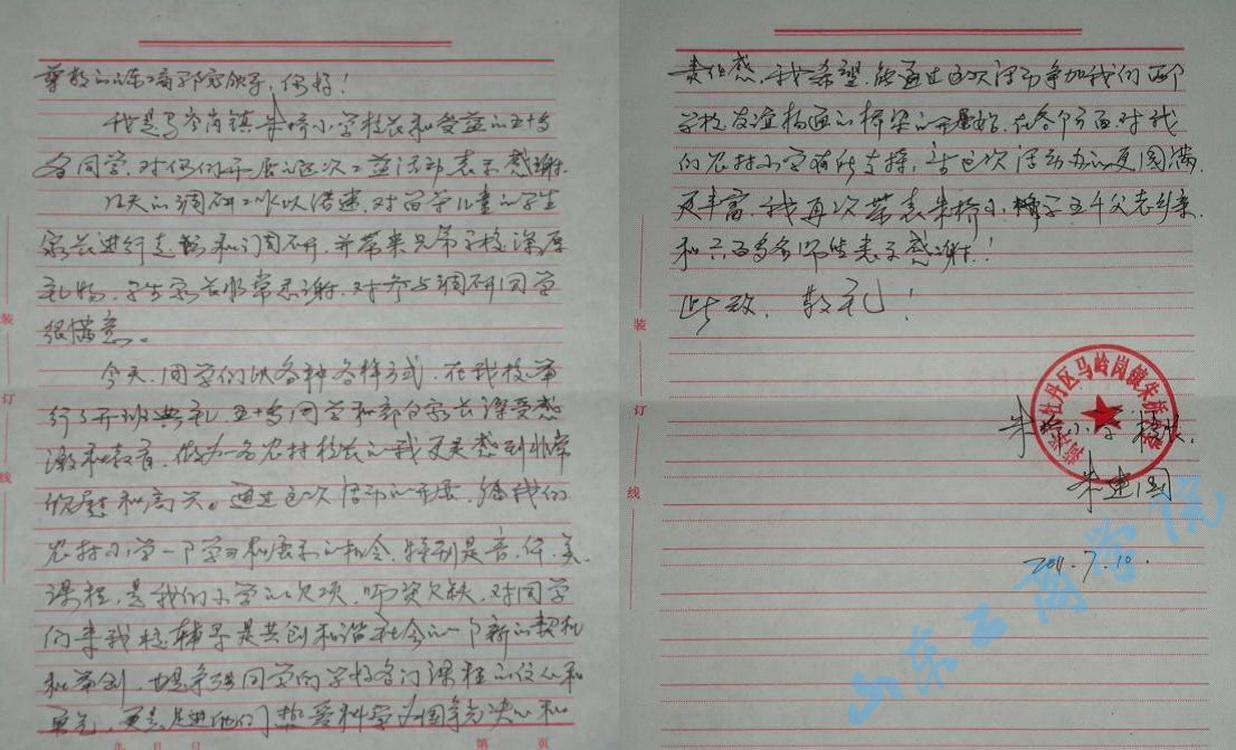 尊敬的山东工商学院领导，你好！
我是马岭岗镇朱桥小学校长和受益的五十多
名同学，对你们开展的这次公益活动表示感谢。
几天的调研工作以来，对留守儿童的学生
家长进行走访和调研，并带来兄弟学校深厚
礼物，学生家长非常感谢，对参与调研同学
很满意。
今天，同学们以各种各样方式，在我校举
行了开班典礼，五十多同学和部分家长深受感
激和教育，做为一名农村校长的我更是感到非常
欣慰和高兴。通过这次活动的开展，给我们
农村小学一个学习和展示的机会，特别是音、体、美
课程，是我们小学的欠项，师资欠缺，对同学
们来我校辅导是共创和谐社会的一个新的契机
和举创，也是争强同学的学好各门课程的信心和
勇气，更是促进他们热爱科学为国争光决心和
责任感，我希望，能通过这次活动争加我们两个
学校友谊沟通的桥梁的开展，在各个方面对我
们农村小学有所支持，让这次活动办的更圆满
更丰富，我再次带表朱桥小学五千父老乡亲
和六百多名师生表示感谢！
此致 敬礼！
牡丹区马岭岗镇朱桥小学
朱桥小学 校长
朱建国
2011.7.10.
山东工商学院
装
订
线
装
订
线
年 月 日
第 页